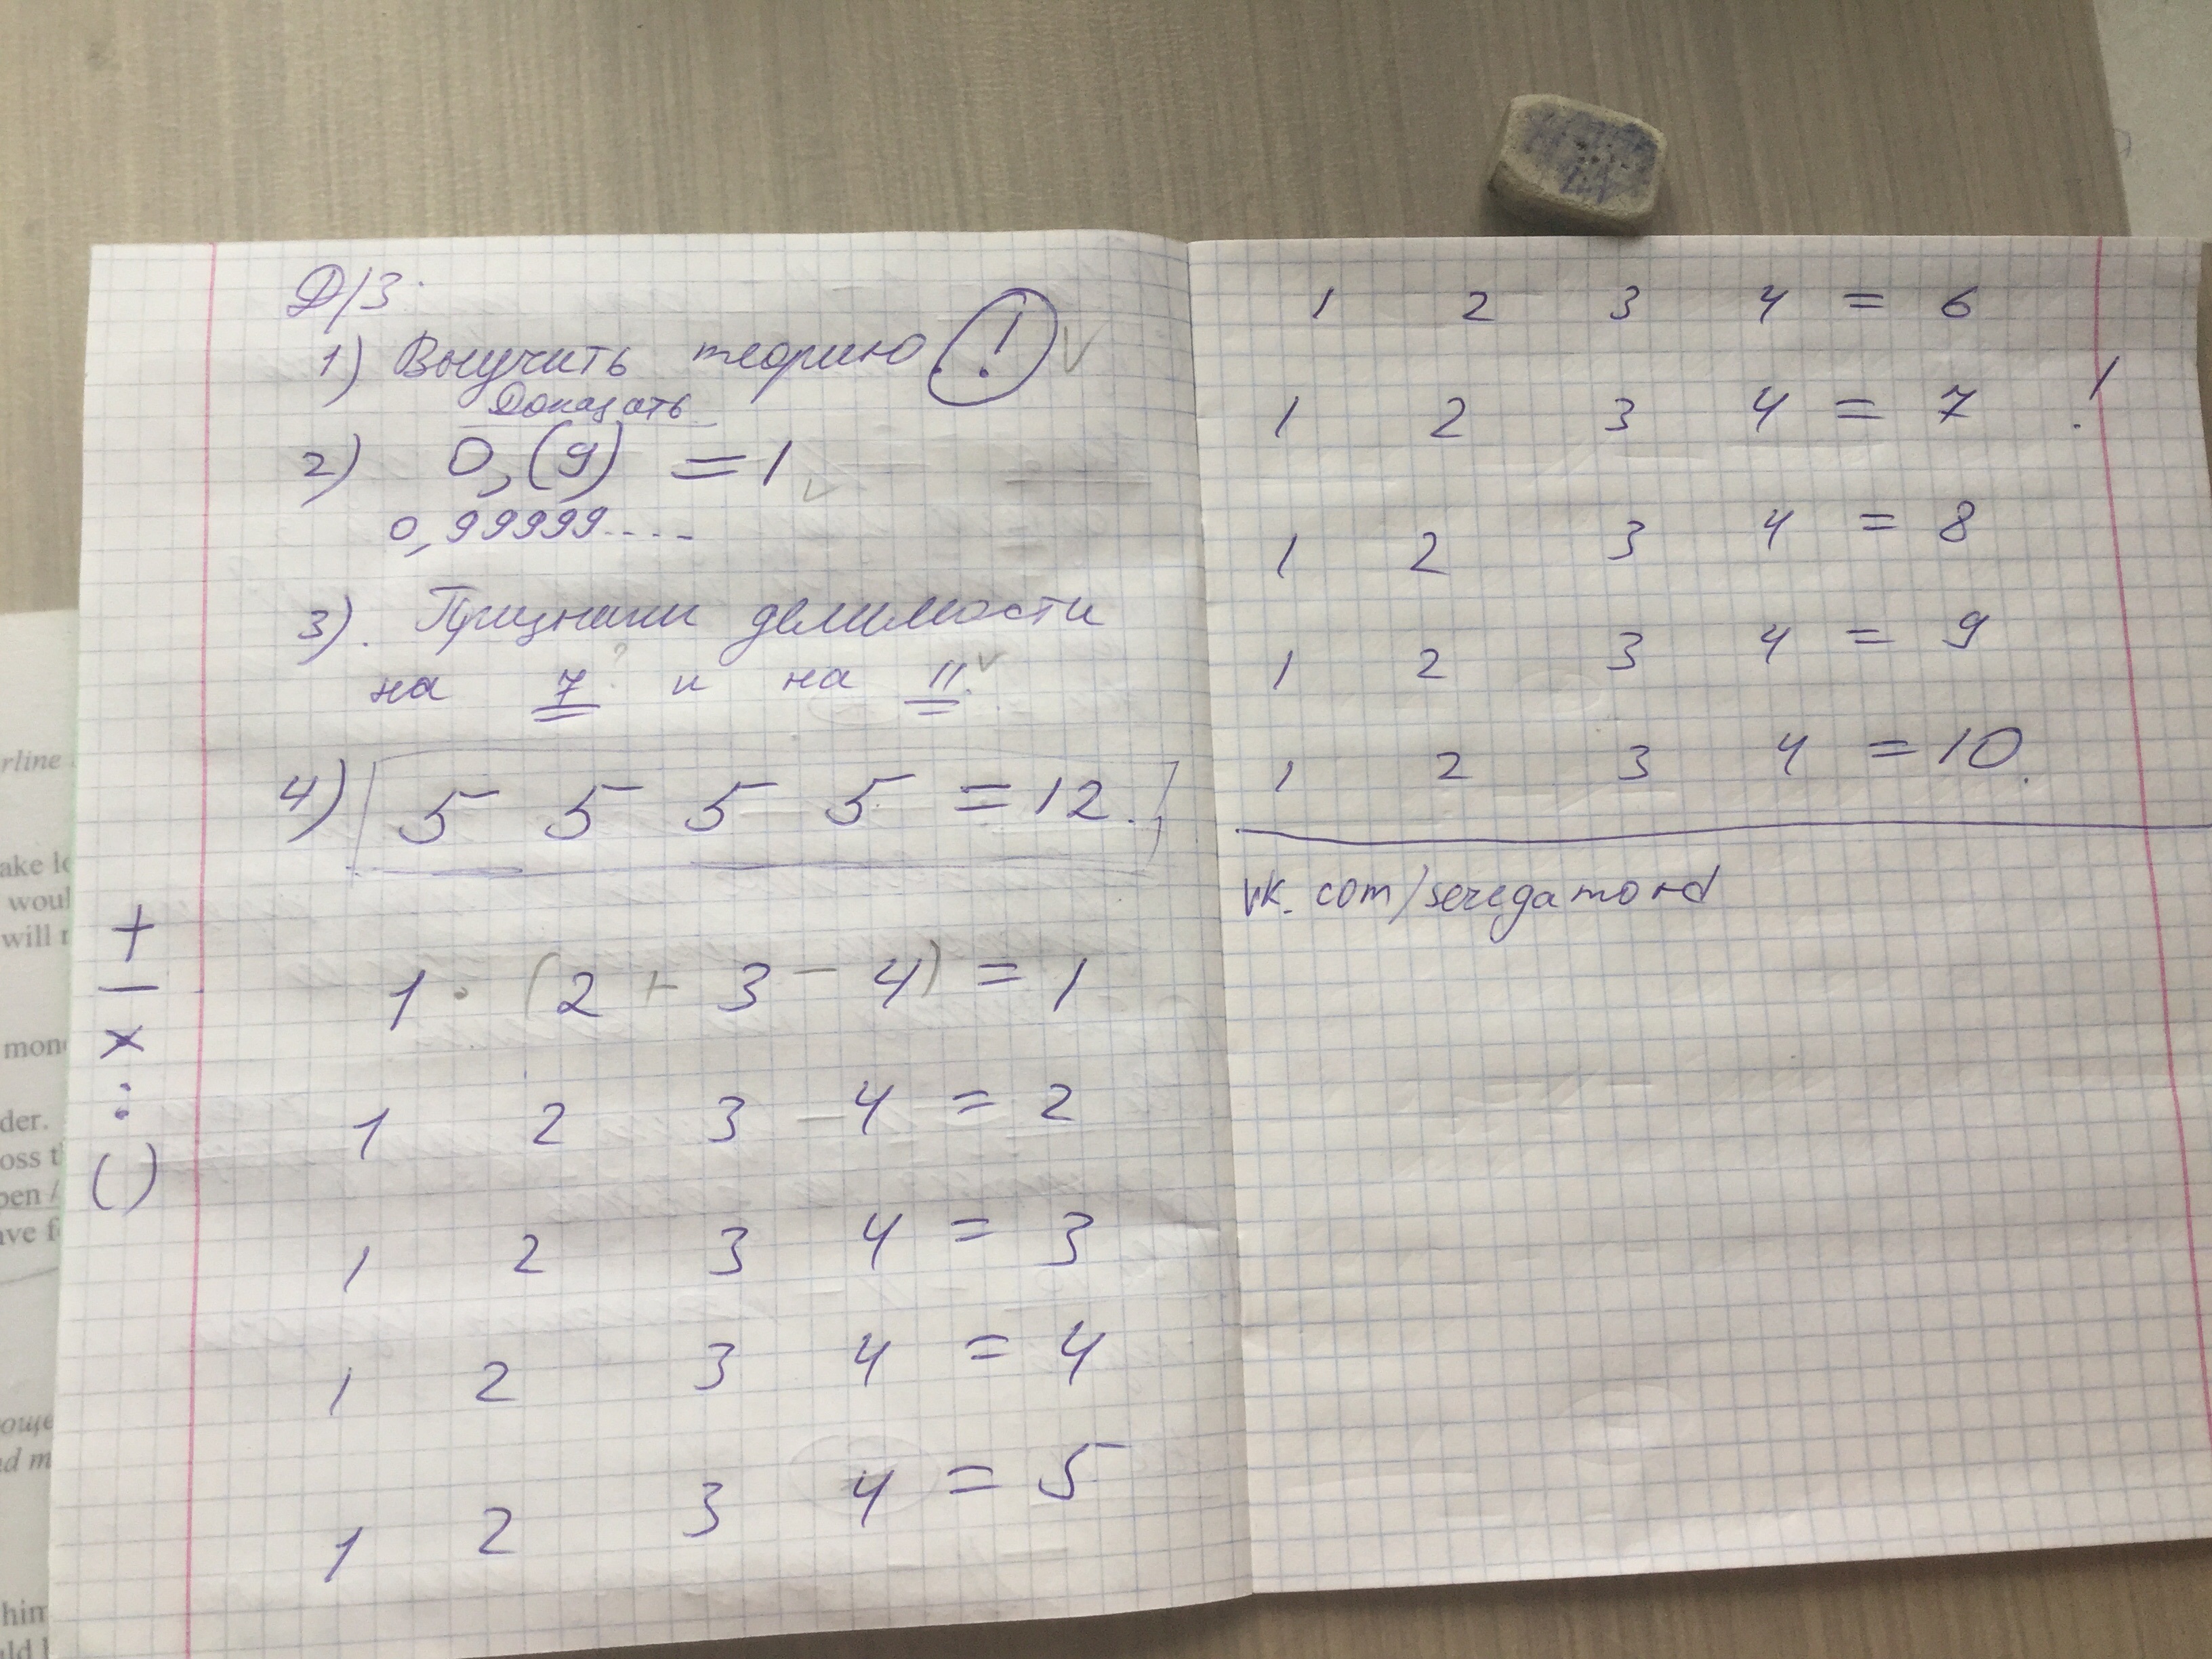 Д/З:
1) Выучить теорию. !
Доказать
2) 0,(9) = 1
0,99999....
3). Признаки делимости
на 7 ? и на 11.
4) 5 5 5 5 = 12.
+
−
×
:
( )
1 · (2 + 3 − 4) = 1
1 2 3 4 = 2
1 2 3 4 = 3
1 2 3 4 = 4
1 2 3 4 = 5
1 2 3 4 = 6
1 2 3 4 = 7 !
1 2 3 4 = 8
1 2 3 4 = 9
1 2 3 4 = 10.
vk.com/seregamord
rline
woul
will r
der.
oss t
pen /